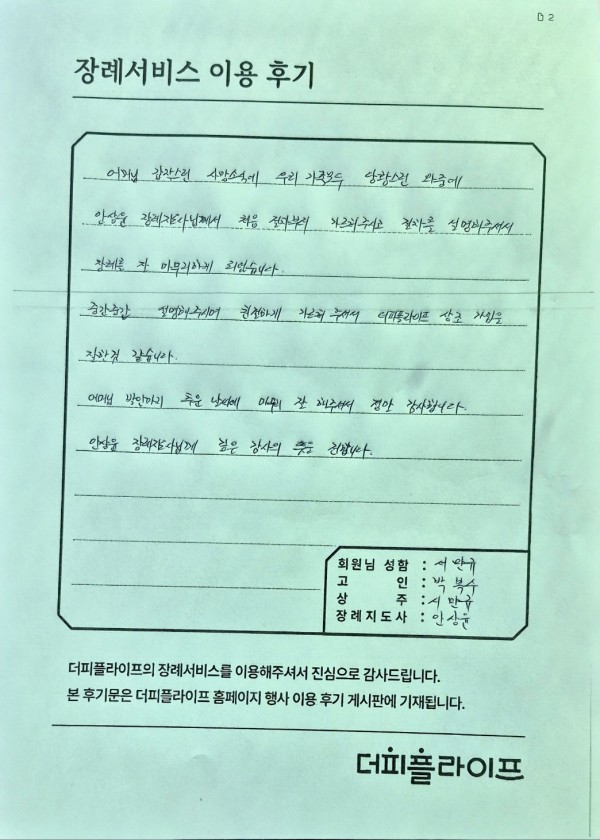 D 2
장례서비스 이용 후기
어머님 갑작스런 사망소식에 우리 가족모두 당황스런 와중에
안상윤 장례지도사님께서 처음 절차부터 가르쳐주시고 절차를 설명해주셔서
장례를 잘 마무리하게 되었습니다.
중간중간 설명해주시며 친절하게 가르쳐 주셔서 더피플라이프 상조 가입은
잘한것 같습니다.
어머님 발인까지 추운 날씨에 마무리 잘 해주셔서 정말 감사합니다.
안상윤 장례지도사님께 깊은 감사의 뜻을 전합니다.
회원님 성함 : 서만규
고 인 : 박복수
상 주 : 서만규
장례지도사 : 안상윤
더피플라이프의 장례서비스를 이용해주셔서 진심으로 감사드립니다.
본 후기문은 더피플라이프 홈페이지 행사 이용 후기 게시판에 기재됩니다.
더피플라이프